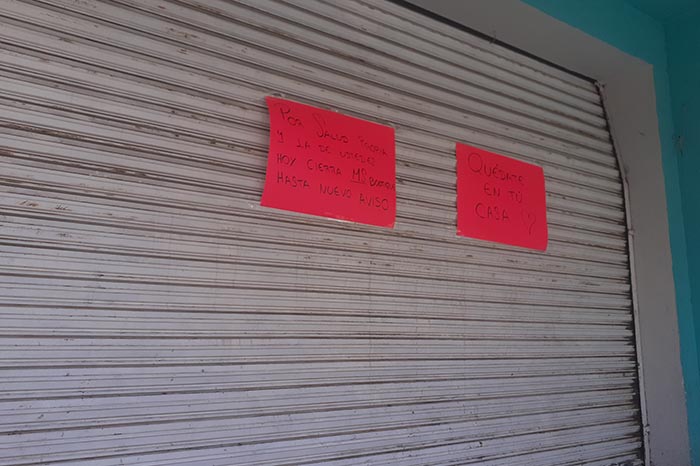 POR SALUD PROPIA
Y LA DE USTEDES
HOY CIERRA MD BOUTIQUE
HASTA NUEVO AVISO
QUÉDATE
EN TÚ
CASA